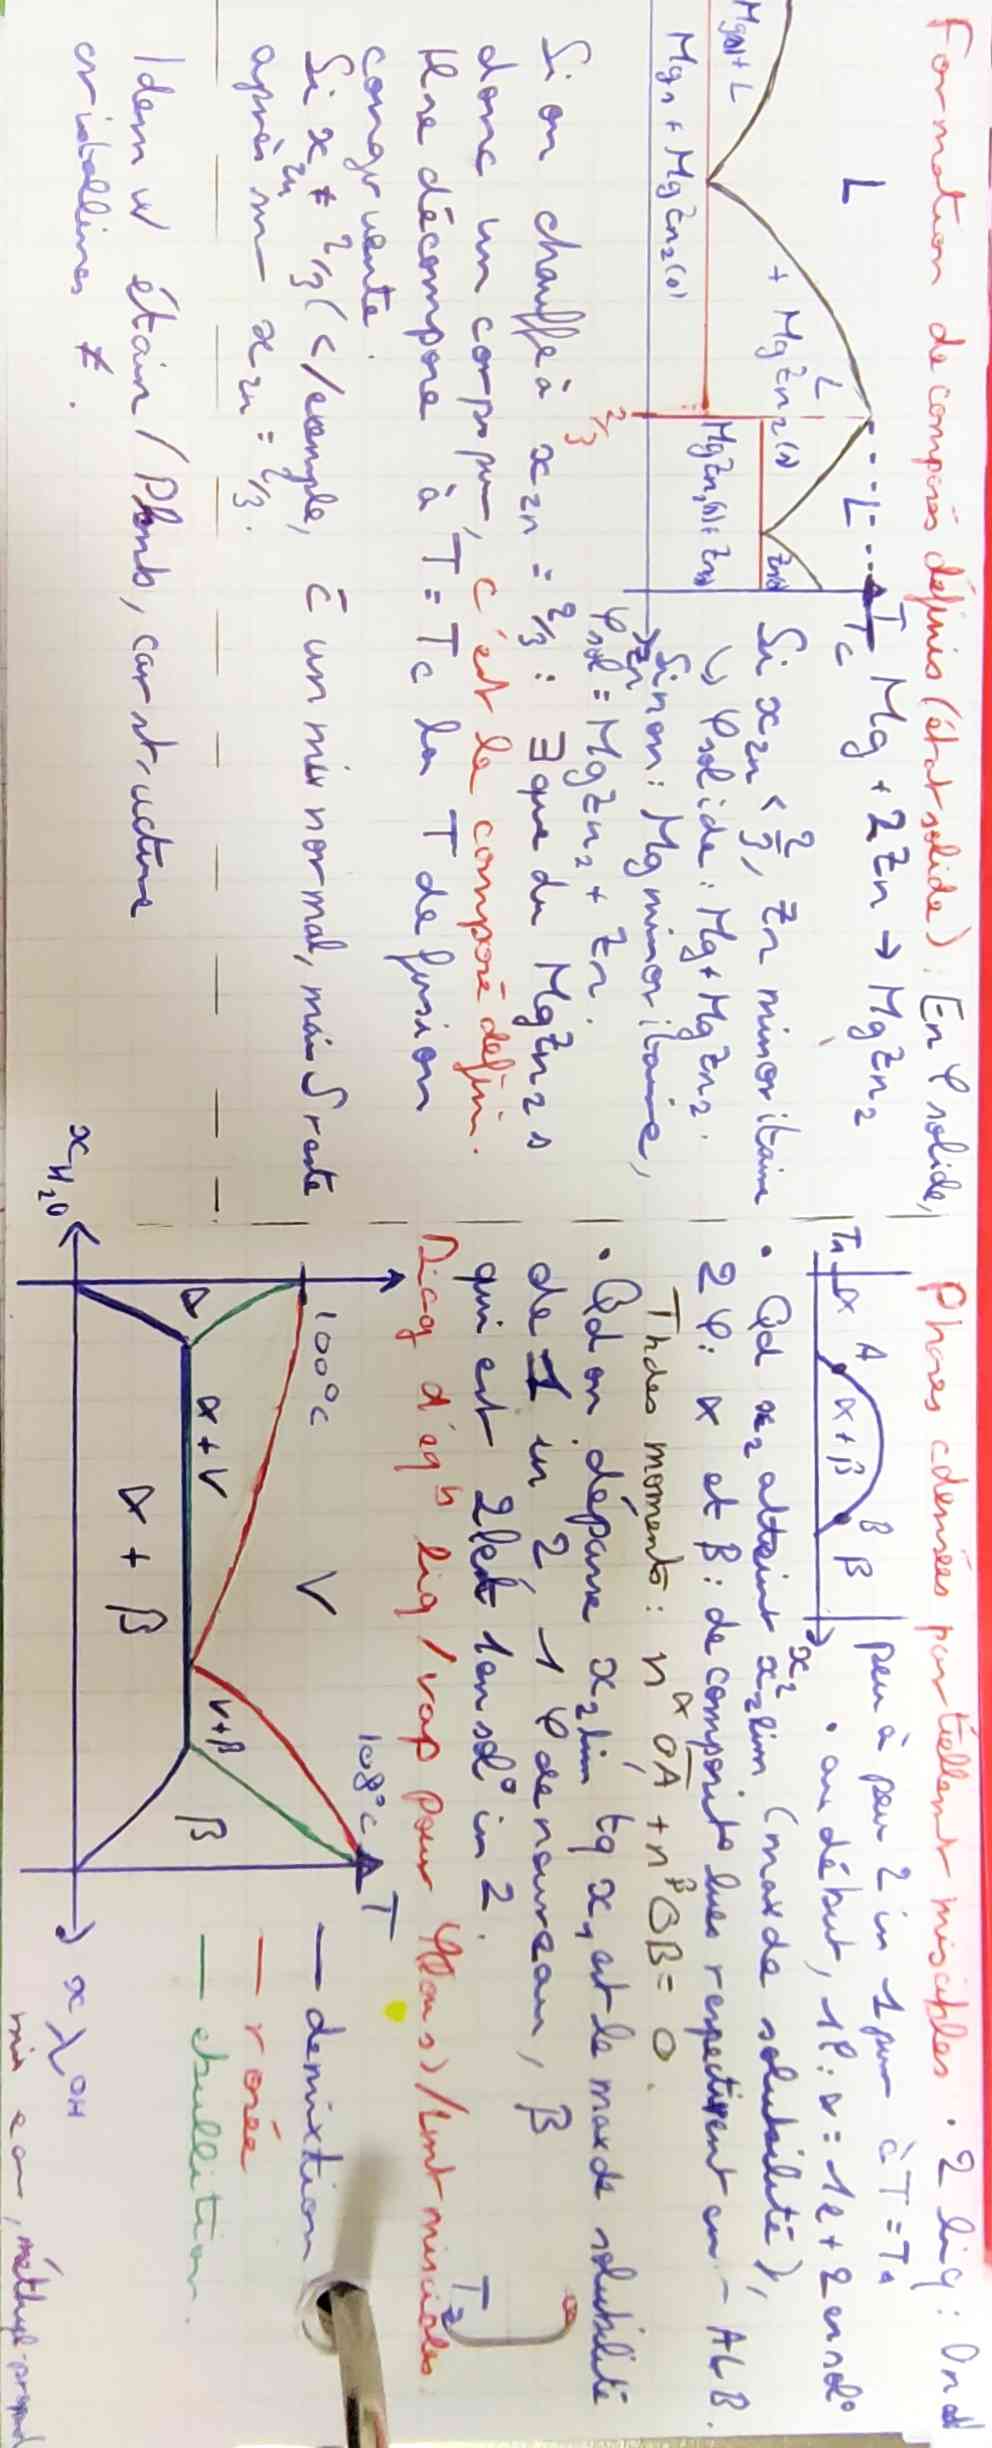 Formation de composés définis (état solide) : En φ solide,
Mg + 2Zn → MgZn₂
Tc
L
L
Mg(s) + L
L + MgZn₂(s)
Zn(s)
Mg(s) + MgZn₂(s)
MgZn₂(s) + Zn(s)
2/3
xZn
Si xZn < 2/3, Zn minoritaire
↳ φ solide : Mg + MgZn₂.
Sinon : Mg minoritaire,
φsol = MgZn₂ + Zn.
Si on chauffe à xZn = 2/3 : ∃ que du MgZn₂ s
donc un corps pur, c'est le composé défini.
Il se décompose à T = Tc la T de fusion
congruente.
Si xZn ≠ 2/3 (</exemple, c̄ un mix normal, mais S reste
après sur xZn = 2/3.
Idem w étain / Plomb, car structure
cristallines ≠.
Phases cdensées partiellement miscibles . 2 liq : On
peu à peu 2 in 1 pur à T = T₁
T₁
α
A
α+β
B
β
x₂
• au début, 1φ : α = 1l + 2 en sol°
• Qd x₂ atteint x₂lim (max de solubilité),
2 φ : α et β : de composit° lues respectivent en A & B.
Th des moments : nα OA + nβ OB = 0.
• Qd on dépasse x₂lim tq x₁ est le max de solubilité
de 1 in 2, 1 φ de nouveau, β
qui est 2l et 1 en sol° in 2.
Diag d'éq liq / vap pour
miscibles
T
100°C
108°C
V
α
α+V
V+β
β
α + β
xH₂O
x λOH
— demixtion
— rosée
— ébullition.
mix eau, méthyl-propanol